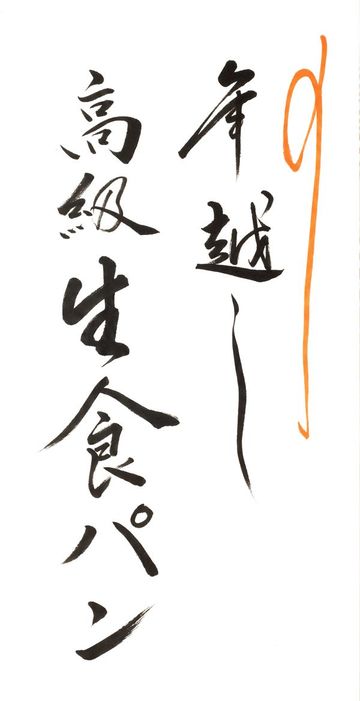 年越し
高級生食パン